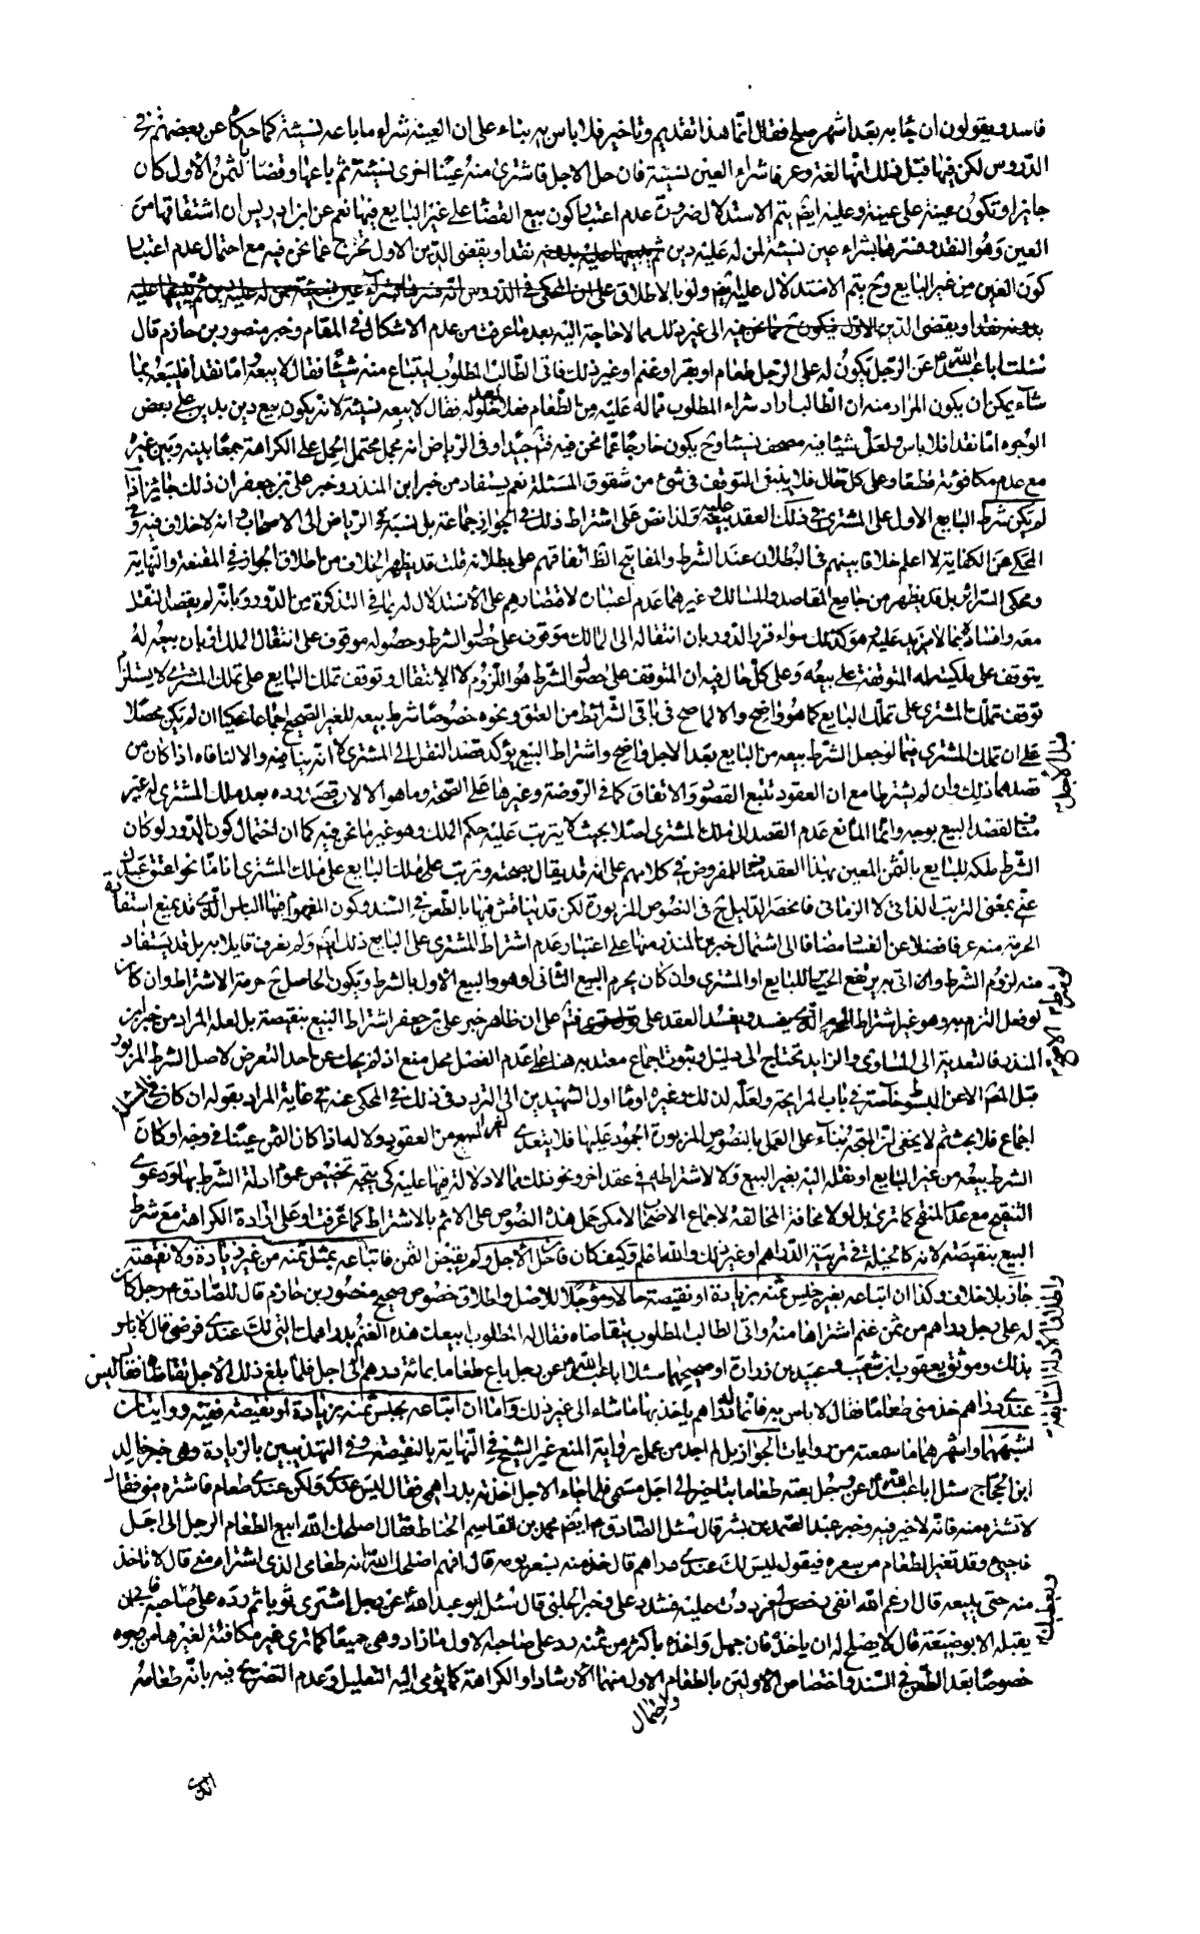 فاسد ويقولون ان جاء به بعد اشهر صلح فقال انما هذا تقديم وتأخير فلا باس به بناء على ان العينة شراء ما باعه نسيئة كما حكاه عن بعضهم في
الدروس لكن فيها قبل ذلك انها لغة وعرفا شراء العين نسيئة فان حل الاجل فاشترى منه عينا اخرى نسيئة ثم باعها وقضاه الثمن الاول كان
جايزا وتكون عينة على عينة وعليه ايضا يتم الاستدلال ضرورة عدم اعتبار كون بيع القضاء على غير البايع فيها نعم عن ابن ادريس ان اشتقاقها من
العين وهو النقد وفسرها بشراء عين نسيئة لمن له عليه دين ثم يبيعها عليه بدونه نقدا ويقضى الدين الاول فتخرج عما نحن فيه مع احتمال عدم اعتبار
كون العين من غير البايع وح يتم الاستدلال عليه ايضا ولو بالاطلاق
الى غير ذلك مما لا حاجة اليه بعد ما عرفت من عدم الاشكال في المقام وخبر منصور بن حازم قال
سئلت ابا عبد الله عن الرجل يكون له على الرجل طعام او بقر او غنم او غير ذلك فاتى الطالب المطلوب ليبتاع منه شيئا فقال لا يبعه اما نقدا فليبعه بما
شاء يمكن ان يكون المراد منه ان الطالب اراد شراء المطلوب بماله عليه من الطعام فقال لا يبعه نسيئة لانه يكون بيع دين بدين على بعض
الوجوه اما نقدا فلا باس ولعل شيئا فيه مصحف نسيئا وح يكون خارجا عما نحن فيه فتم جيدا وفي الرياض انه مجمل محتمل الحمل على الكراهة جمعا بينه وبين غيره
مع عدم مكافوته قطعا وعلى كل حال فلا ينبغي التوقف في شئ من شقوق المسئلة نعم يستفاد من خبر ابن المنذر وخبر على بن جعفر ان ذلك جايز اذا
لم يكن شرط البايع الاول على المشترى في ذلك العقد بيعه عليه ولذا نص على اشتراط ذلك في الجواز جماعة بل نسبه في الرياض الى الاصحاب وانه لا خلاف فيه وفي
المحكي عن الكفاية لا اعلم خلافا بينهم في البطلان عند الشرط والمفاتيح الظ اتفاقهم على بطلانه قلت قد يظهر الخلاف من اطلاق الجواز في المقنعة والنهاية
ومحكى السرائر بل قد يظهر من جامع المقاصد والمسالك وغيرهما عدم اعتباره لاقتصارهم على الاستدلال له بما في التذكرة من الدور وبانه لم يقصد النقل
معه وافساده بما لا مزيد عليه
يتوقف على ملكيته له المتوقفة على بيعه وعلى كل حال فيه ان المتوقف على حصول الشرط هو اللزوم لا الانتقال وتوقف تملك البايع على تملك المشترى لا يستلزم
توقف تملك المشترى على تملك البايع كما هو واضح والا لما صح في باقي الشرائط من العتق ونحوه خصوصا شرط بيعه للغير الصحيح اجماعا محكيا ان لم يكن محصلا
على ان تملك المشترى فيما لو جعل الشرط بيعه من البايع بعد الاجل واضح واشتراط البيع يؤكد قصد النقل الى المشترى لا انه ينافيه والا لنافاه اذا كان من
قصدهما ذلك وان لم يشترطا مع ان العقود تتبع القصود والاتفاق كما في الروضة وغيرها على الصحة وما هو الا لان قصد رده بعد ملك المشترى له غير
مناف لقصد البيع بوجه وانما المانع عدم القصد الى ملك المشترى اصلا بحيث لا يترتب عليه حكم الملك وهو غير ما نحن فيه كما ان احتمال كون الدور لو كان
الشرط ملكه للبايع بالثمن المعين بهذا العقد مناف للمفروض في كلامهم على انه قد يقال بصحته وترتب على ملك البايع على ملك المشترى انا ما نحو اعتق عبدك
عني بمعنى الترتب الذاتي لا الزماني فانحصر الدليل ح في النصوص المزبورة لكن قد يناقش فيها بالطعن في السند وكون المفهوم فيها الباس الذي قد يمنع استفادة
الحرمة منه عرفا فضلا عن الفساد مضافا الى اشتمال خبر ابن المنذر منها على اعتبار عدم اشتراط المشترى على البايع ذلك ايضا ولم نعرف قايلا به بل قد يستفاد
منه لزوم الشرط
لو فعل التزم به وهو غير اشتراط المحرم الذي يفسد ويفسد العقد فتم على ان ظاهر خبر على بن جعفر اشتراط البيع بنقيصة بل لعله المراد من خبر ابن
المنذر فالتعدية الى المساوى والزايد تحتاج الى دليل وثبوت اجماع معتد به هنا على عدم الفصل محل منع اذ لم يحك عن احد التعرض لاصل الشرط المزبور
قبل المص الا عن المبسوط خاصة في باب المرابحة ولعله لذلك وغيره اومأ اول الشهيدين الى التردد في ذلك في المحكي عنه في غاية المراد بقوله ان كان في المسئلة
اجماع فلا بحث ثم لا يخفى ان المتجه بناء على العمل بالنصوص المزبورة الجمود عليها فلا يتعدى لغير البيع من العقود ولا له اذا كان الثمن عينا في وجه او كان
الشرط بيعه من غير البايع او نقله اليه بغير البيع ولا لاشتراطه في عقد اخر ونحو ذلك مما لا دلالة فيها عليه كى يتجه تخصيص عموم ادلة الشرط بها ودعوى
التنقيح مع عدم المنقح كما ترى بل لولا مخافة المخالفة لاجماع الاصحاب لامكن حمل هذه النصوص على الاثم بالاشتراط كما عرفت او على ارادة الكراهة مع شرط
البيع بنقيصة لانه كالحيلة في تربية الدراهم او غير ذلك والله اعلم وكيف كان فاذا حل الاجل ولم يقبض الثمن فابتاعه بمثل ثمنه من غير زيادة ولا نقيصة
جاز بلا خلاف وكذا ان ابتاعه بغير جنس ثمنه بزيادة او نقيصة حالا ومؤجلا للاصل واطلاق خصوص صحيح منصور بن حازم قال للصادق رجل كان
له على رجل دراهم من ثمن غنم اشتراها منه واتى الطالب المطلوب يتقاضاه فقال له المطلوب ابيعك هذه الغنم بدراهمك التي لك عندى فرضى قال لا باس
بذلك وموثق يعقوب بن شعيب وعبيد بن زرارة او صحيحهما سئلا ابا عبد الله عن رجل باع طعاما بمائة درهم الى اجل فلما بلغ ذلك الاجل تقاضاه فقال ليس
عندى دراهم خذ منى طعاما فقال لا باس به فانما له دراهم ياخذ بها ما شاء الى غير ذلك واما ان ابتاعه بجنس ثمنه بزيادة او نقيصة ففيه روايتان
اشبههما واشهرهما ما سمعته من روايات الجواز بل لم اجد من عمل برواية المنع غير الشيخ في النهاية بالنقيصة وفي التهذيبين بالزيادة وهي خبر خالد
ابن الحجاج سئل ابا عبد الله عن رجل بعته طعاما بتاخير الى اجل مسمى فلما جاء الاجل اخذته بدراهمى فقال ليس عندى ولكن عندى طعام فاشتره منى فقال
لا تشتره منه فانه لا خير فيه وخبر عبد الصمد بن بشر قال سئل الصادق ايضا محمد بن القاسم الحناط فقال اصلحك الله ابيع الطعام الرجل الى اجل
فاجئ وقد تغير الطعام من سعره فيقول ليس لك عندى دراهم قال خذ منه بسعر يومه قال افهم اصلحك الله انه طعامى الذى اشتراه منى قال لا تاخذ
منه حتى يبيعه قال ارغم الله انفى رخص لى فرددت عليه فشدد على وخبر الحلبي قال سئل ابو عبد الله عن رجل اشترى ثوبا ثم رده على صاحبه فابى ان
يقبله الا بوضيعة قال لا يصلح له ان ياخذه فان جهل واخذه باكثر من ثمنه رد على صاحبه الاول ما زاد وهي جميعا كما ترى غير مكافئة لغيرها من وجوه
خصوصا بعد الطعن في السند واختصاص الاولين بالطعام الاولى منهما الارشاد او الكراهة كما يؤمى اليه التعليل وعدم التصريح فيه بانه طعامه
واحتمال
قبل الاجل
واطلاق الادلة السابقة